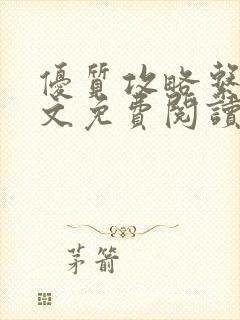 優質攻略繫
文免費閱讀
茅箭